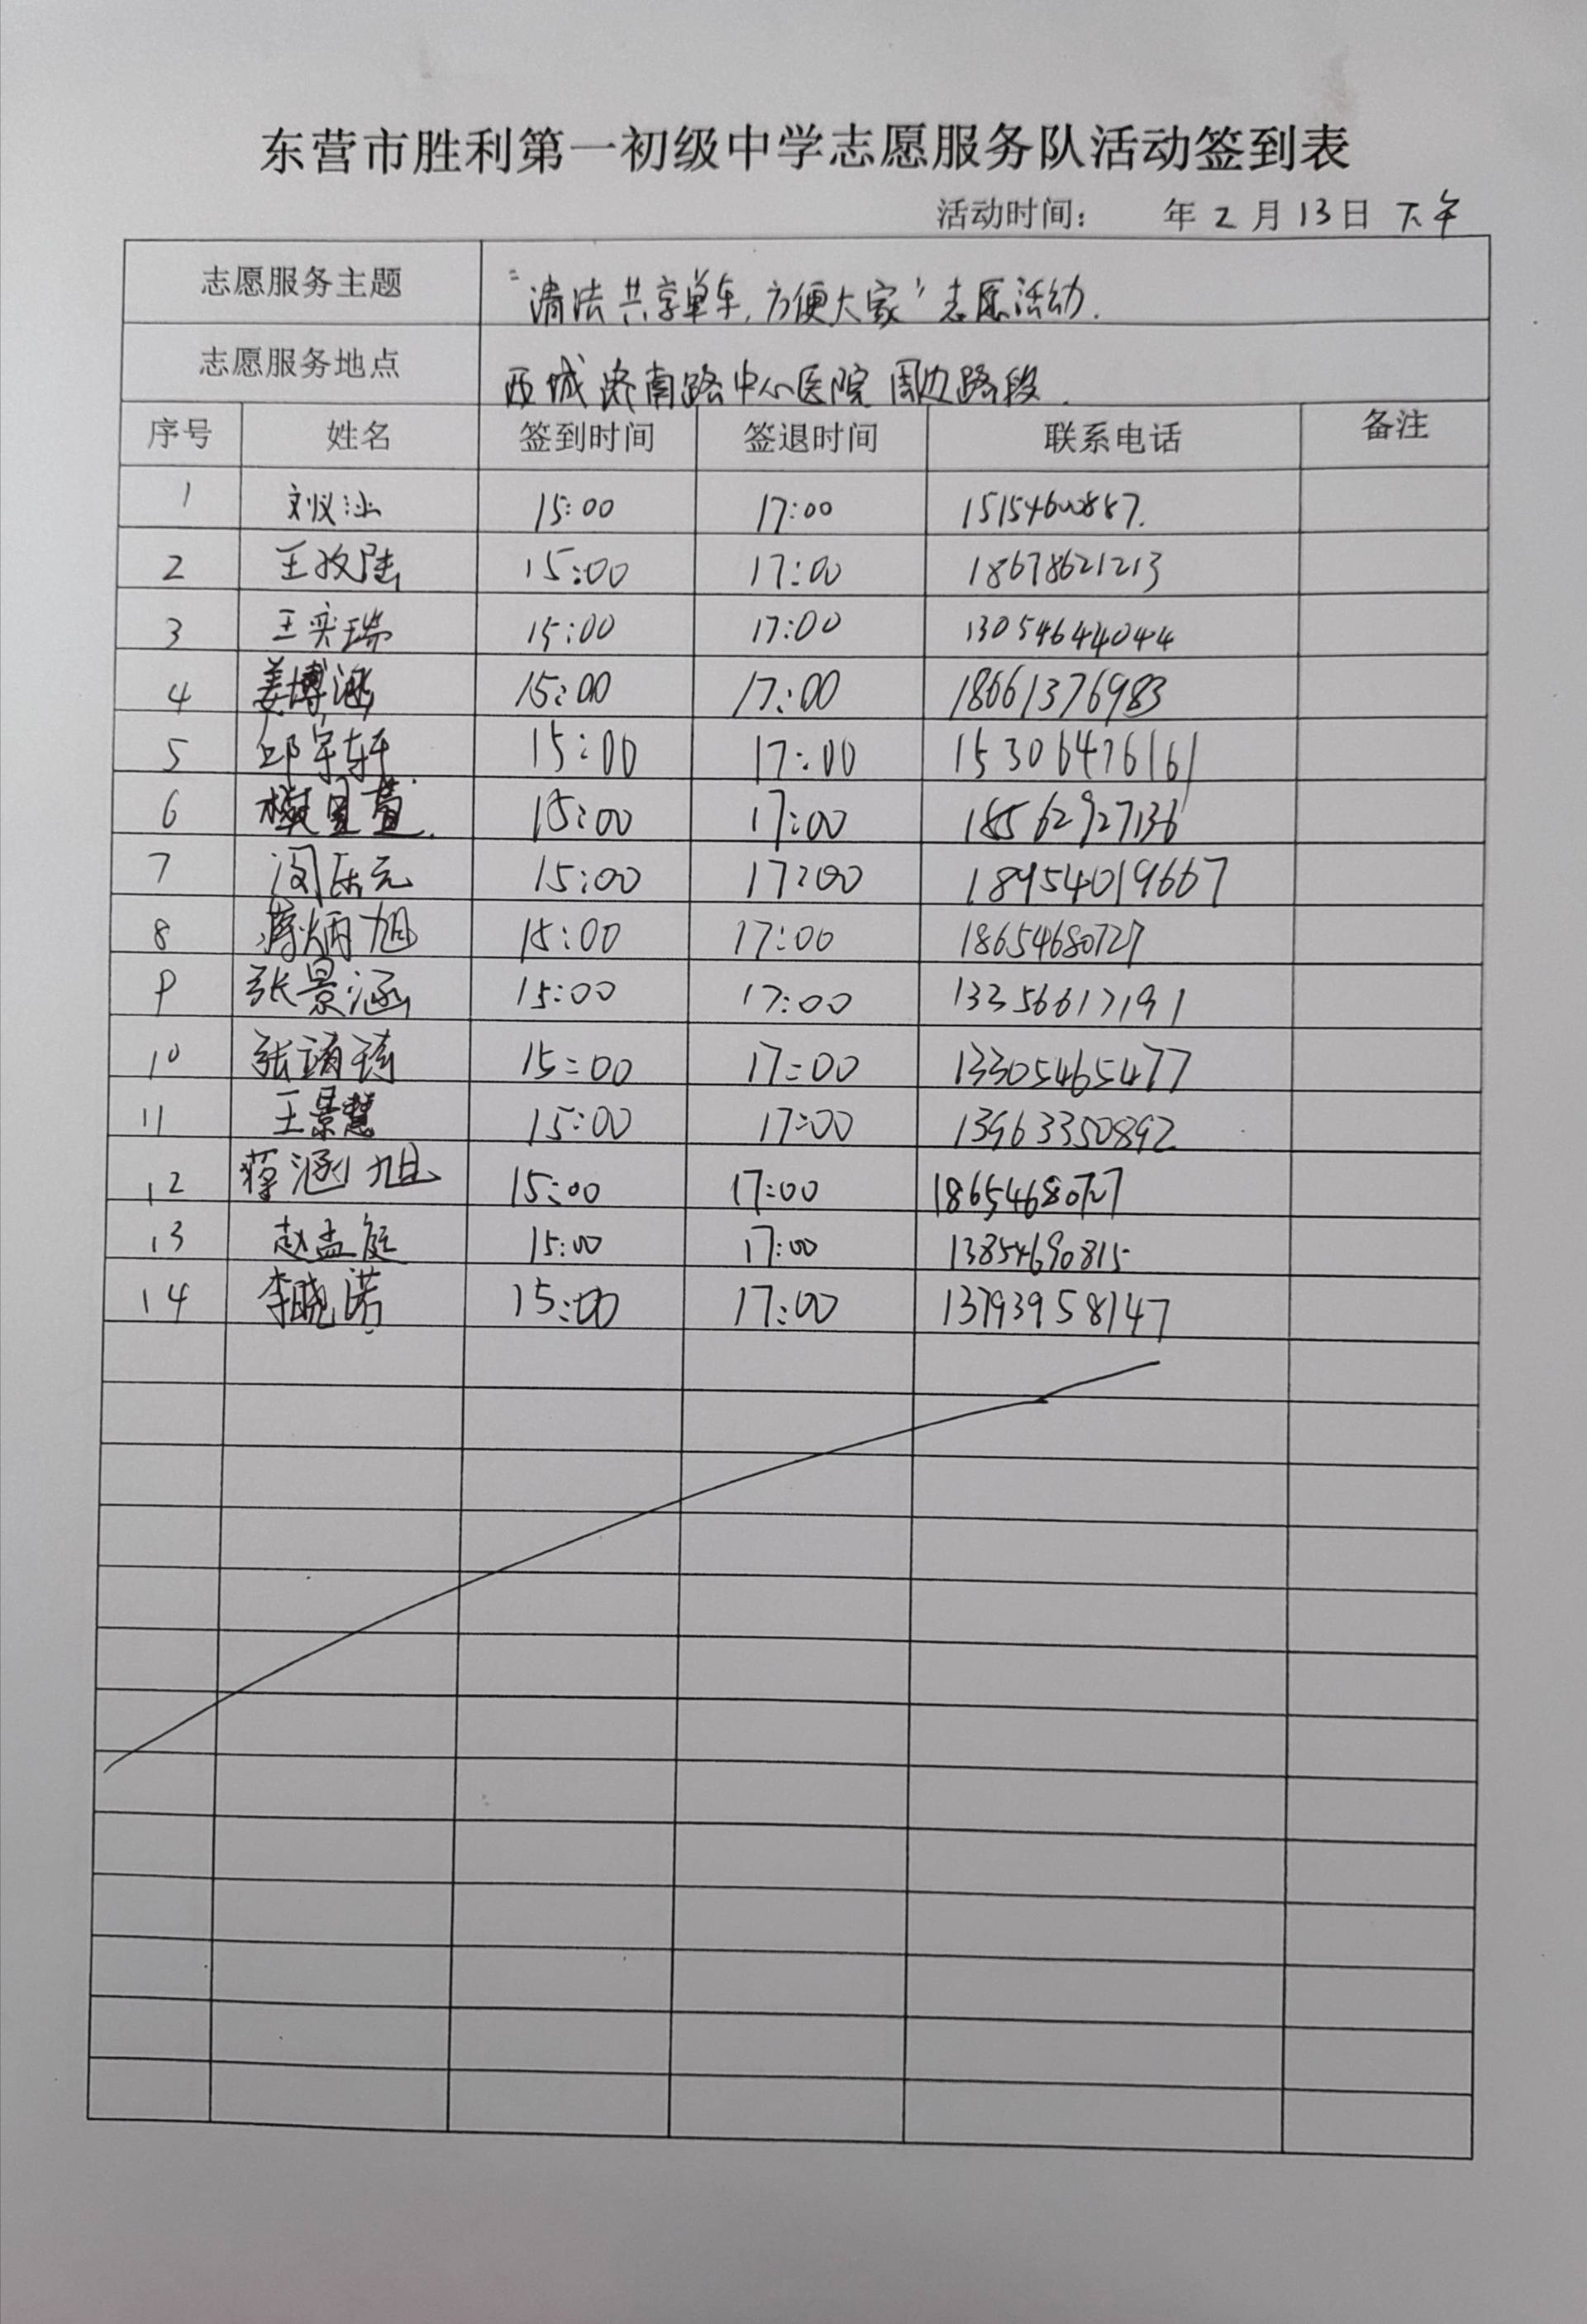 东营市胜利第一初级中学志愿服务队活动签到表
活动时间： 年 2 月 13 日 下午
志愿服务主题 “清洁共享单车,方便大家”志愿活动.
志愿服务地点 西城济南路中心医院周边路段.
序号 姓名 签到时间 签退时间 联系电话 备注
1 15:00 17:00
2 15:00 17:00 18678621213
3 王奕瑞 15:00 17:00 13054644044
4 姜博涵 15:00 17:00 18661376983
5 邱宇轩 15:00 17:00 15306476161
6 15:00 17:00 18562927136
7 闵乐元 15:00 17:00
8 蒋炳旭 15:00 17:00 18654680727
9 张景涵 15:00 17:00 13356617191
10 15:00 17:00 13305465477
11 王景慧 15:00 17:00 13963350892
12 蒋涵旭 15:00 17:00 18654680727
13 赵孟庭 15:00 17:00 13854690815
14 李晓诺 15:00 17:00 13793958147